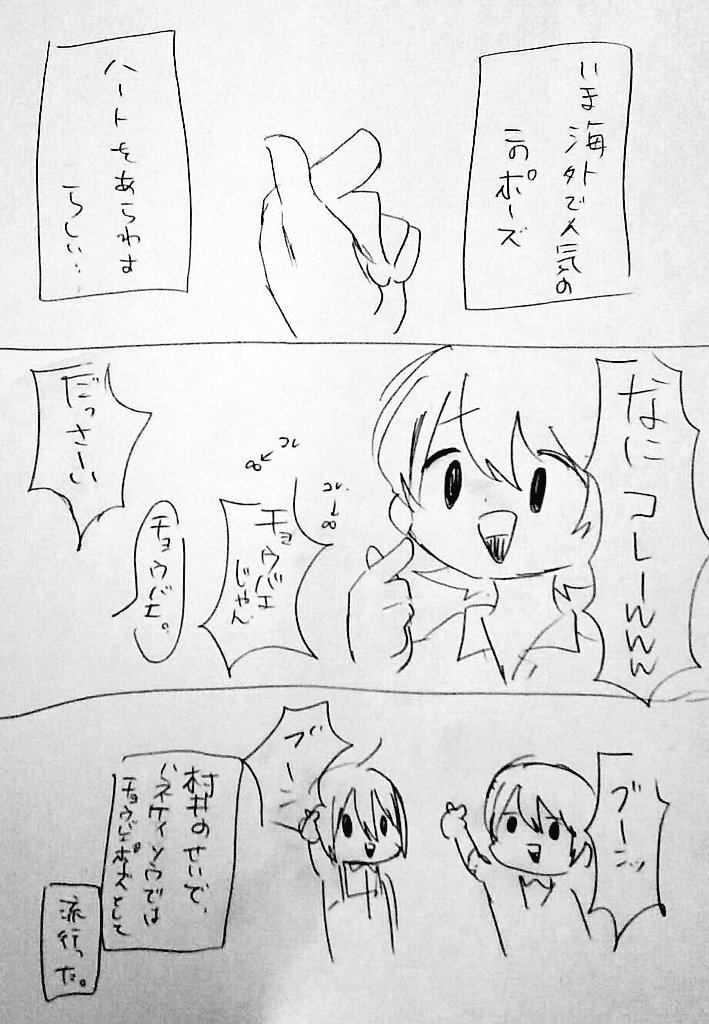 いま海外で人気の
このポーズ
ハートをあらわす
らしい…
なにコレーwww
コレ→∞
コレ→∞
チョウバエ
じゃん
チョウバエ。
だっさーい
ブーンッ
ブーン
村井のせいで、
ハネケイソウでは
チョウバエポーズとして
流行った。